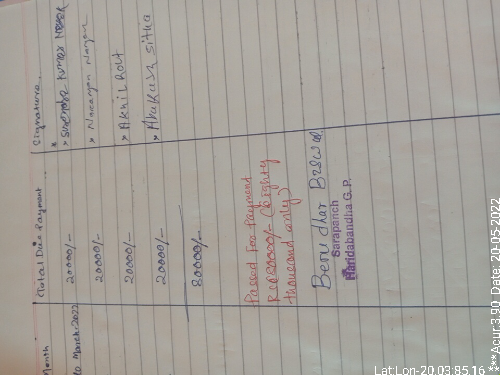 Month
Total Due Payment
Signature.
to March-2022
20000/-
Surendra Kumar Nayak
20000/-
Narayan Nayak
20000/-
Akhil Rout
20000/-
80000/-
Passed For Payment
Rs. 80000/- (Eighty
thousand only)
Benudhar Biswal
Sarapanch
Haridabandha G.P.
Lat:Lon-20.03:85.16
***Acur:3.90 Date: 20-05-2022